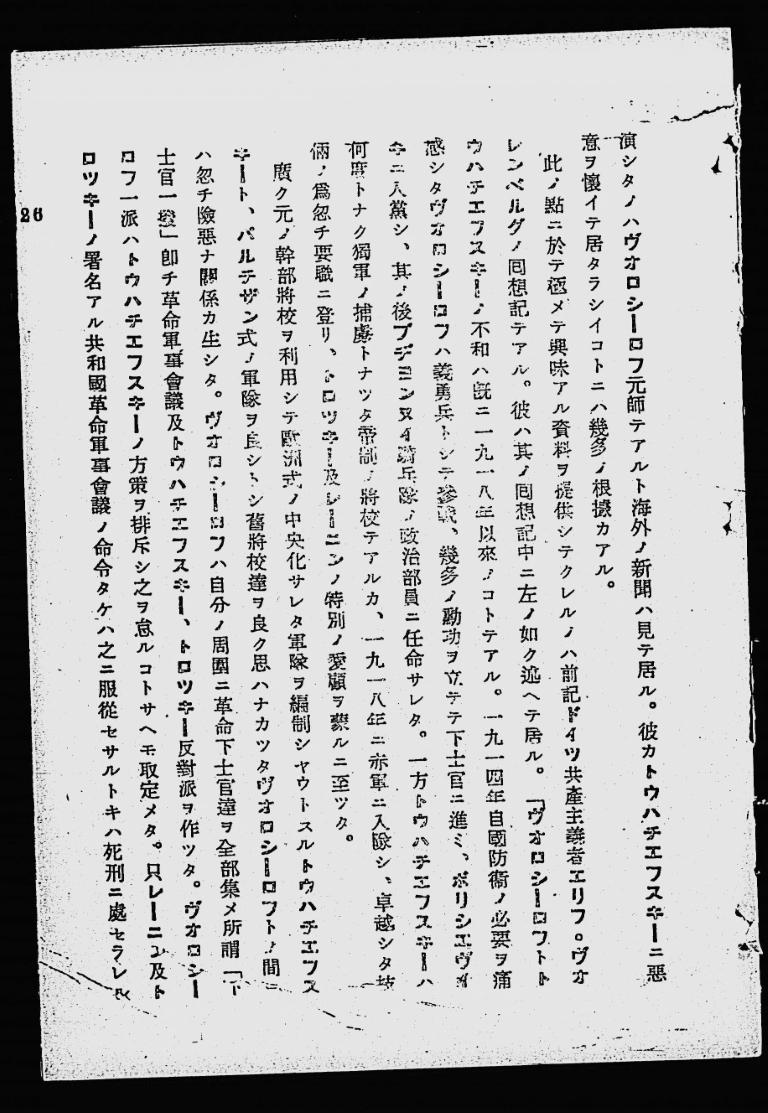 演シタノハヴオロシーロフ元師テアルト海外ノ新聞ハ見テ居ル。彼カトウハチエフスキーニ惡
意ヲ懷イテ居タラシイコトニハ幾多ノ根據カアル。
此ノ點ニ於テ極メテ興味アル資料ヲ提供シテクレルノハ前記ドイツ共產主義者エリフ。ヴオ
レンベルグノ囘想記テアル。彼ハ其ノ囘想記中ニ左ノ如ク述ヘテ居ル。「ヴオロシーロフトト
ウハチエフスキーノ不和ハ旣ニ一九一八年以來ノコトテアル。一九一四年自國防衞ノ必要ヲ痛
感シタヴオロシーロフハ義勇兵トシテ參戰、幾多ノ勳功ヲ立テテ下士官ニ進ミ、ボリシエヴイ
キニ入黨シ、其ノ後ブヂヨンヌイ騎兵隊ノ政治部員ニ任命サレタ。一方トウハチエフスキーハ
何度トナク獨軍ノ捕虜トナツタ帝制ノ將校テアルカ、一九一八年ニ赤軍ニ入隊シ、卓越シタ技
倆ノ爲忽チ要職ニ登リ、トロツキー及レーニンノ特別ノ愛顧ヲ蒙ルニ至ツタ。
廣ク元ノ幹部將校ヲ利用シテ歐洲式ノ中央化サレタ軍隊ヲ編制シヤウトスルトウハチエフス
キート、パルチザン式ノ軍隊ヲ良シトシ舊將校達ヲ良ク思ハナカツタヴオロシーロフトノ間ニ
ハ忽チ險惡ナ關係カ生シタ。ヴオロシーロフハ自分ノ周圍ニ革命下士官達ヲ全部集メ所謂「下
士官一發」卽チ革命軍事會議及トウハチエフスキー、トロツキー反對派ヲ作ツタ。ヴオロシー
ロフ一派ハトウハチエフスキーノ方策ヲ排斥シ之ヲ怠ルコトサヘモ取定メタ。只レーニン及ト
ロツキーノ署名アル共和國革命軍事會議ノ命令タケハ之ニ服從セサルトキハ死刑ニ處セラレ
26